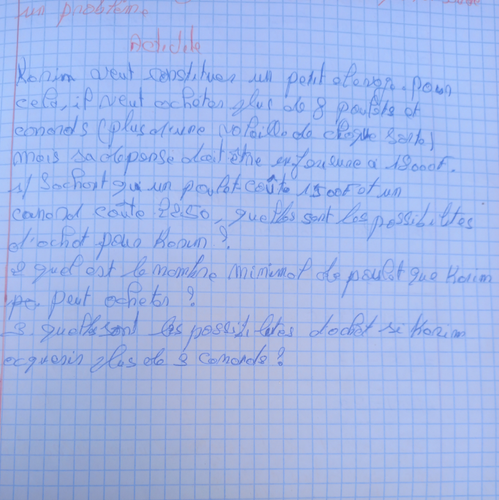 un problème
Activité
Karim veut constituer un petit élevage. pour
cela, il veut acheter plus de 8 poulets et
canards (plus d'une volaille de chaque sorte)
mais sa dépense doit être inférieure à 18000F.
1/ Sachant qu'un poulet coûte 1500F et un
canard coûte 2250, quelles sont les possibilités
d'achat pour Karim ?
2 quel est le nombre minimal de poulet que Karim
peut acheter ?
3 quelles sont les possibilités d'achat si Karim
acquérir plus de 3 canards ?